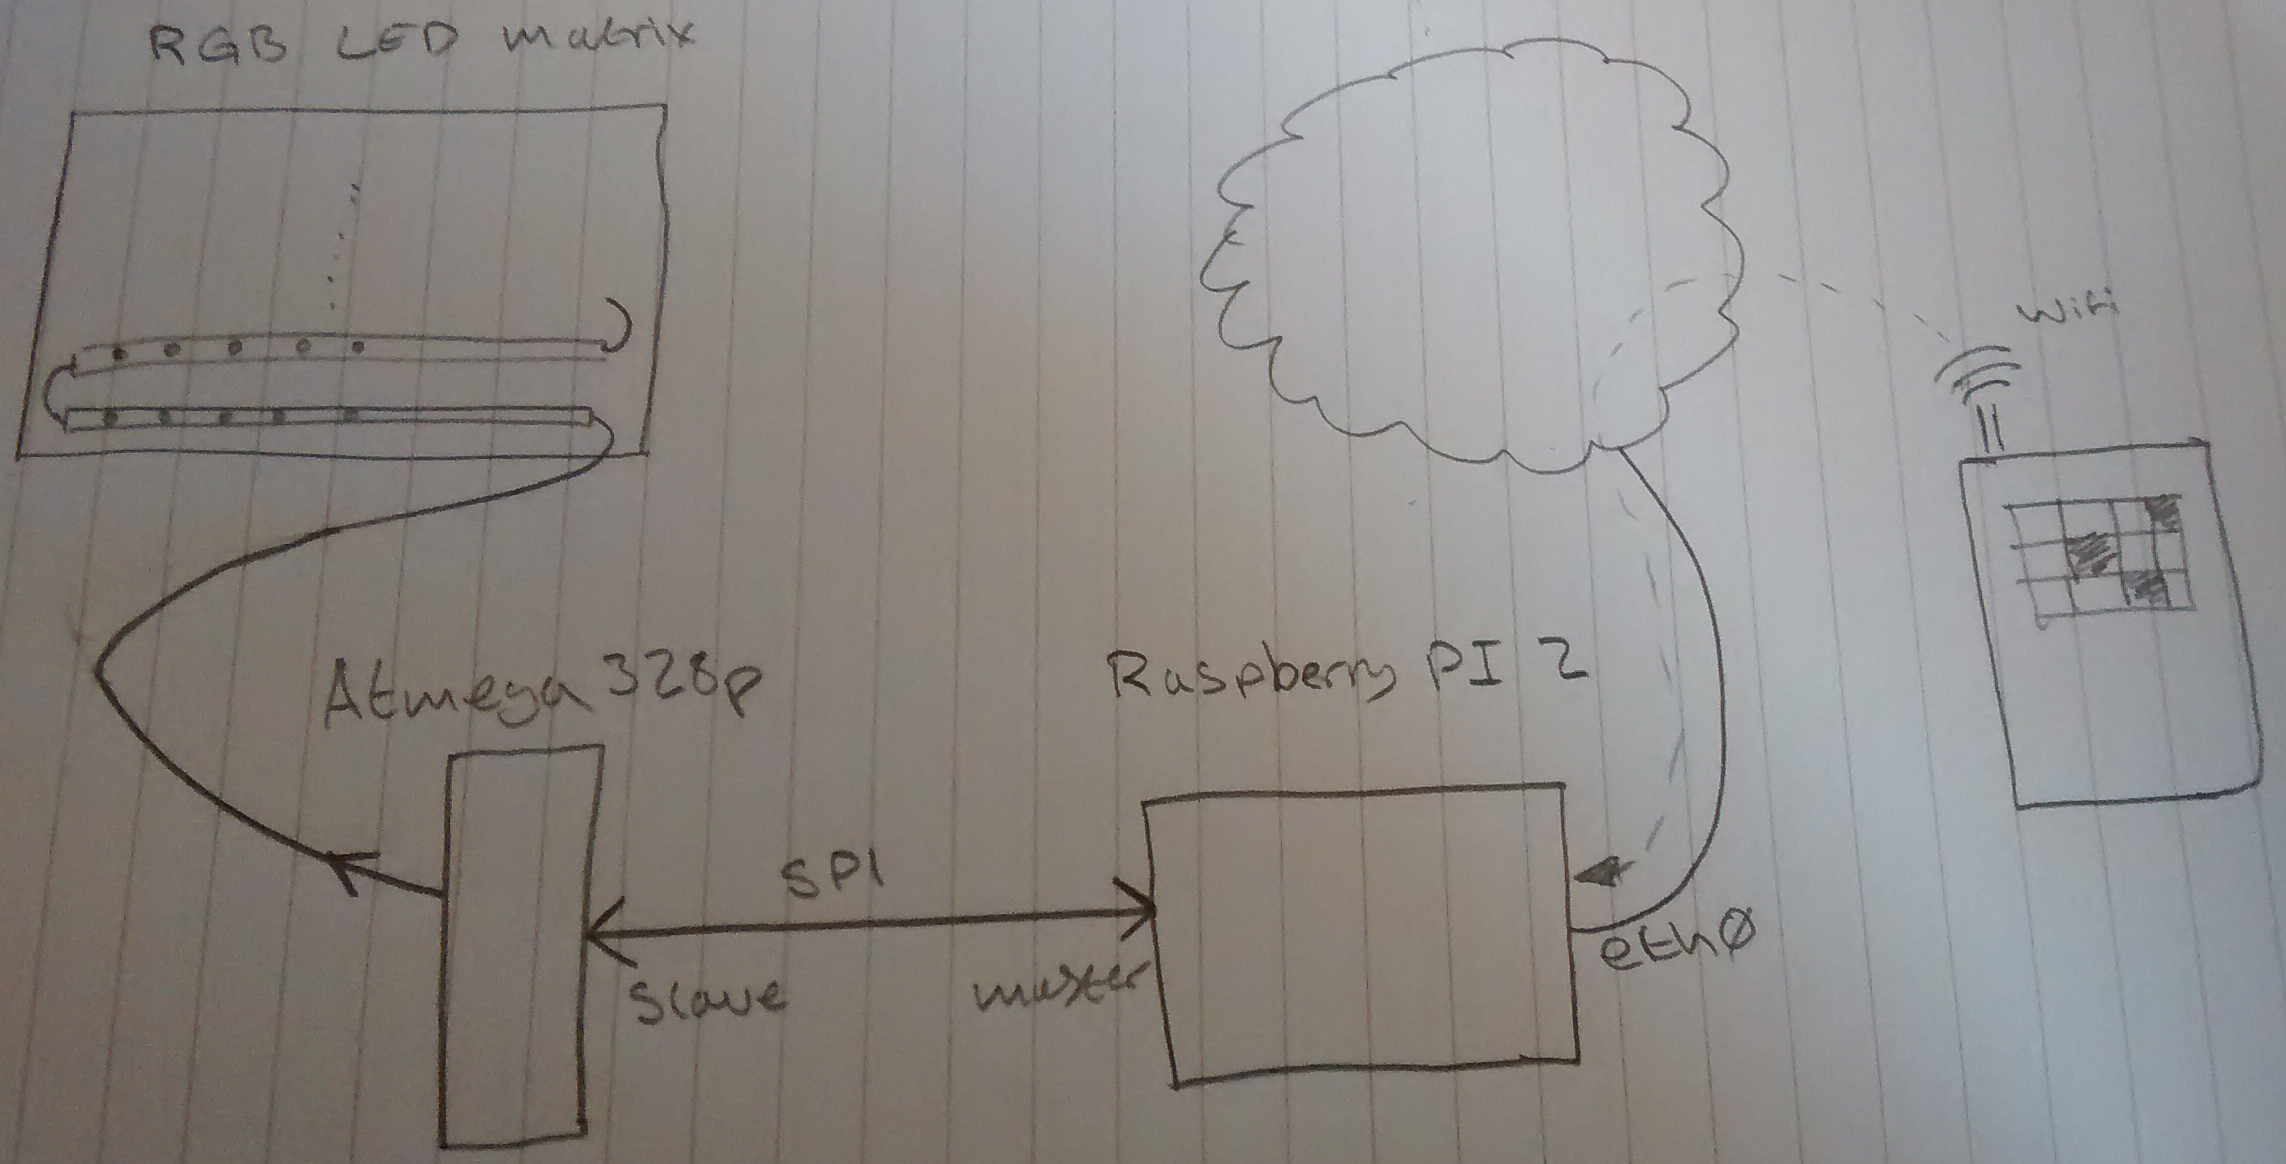 RGB LED matrix
WiFi
Atmega 328p
Raspberry PI 2
SPI
eth0
Slave
master